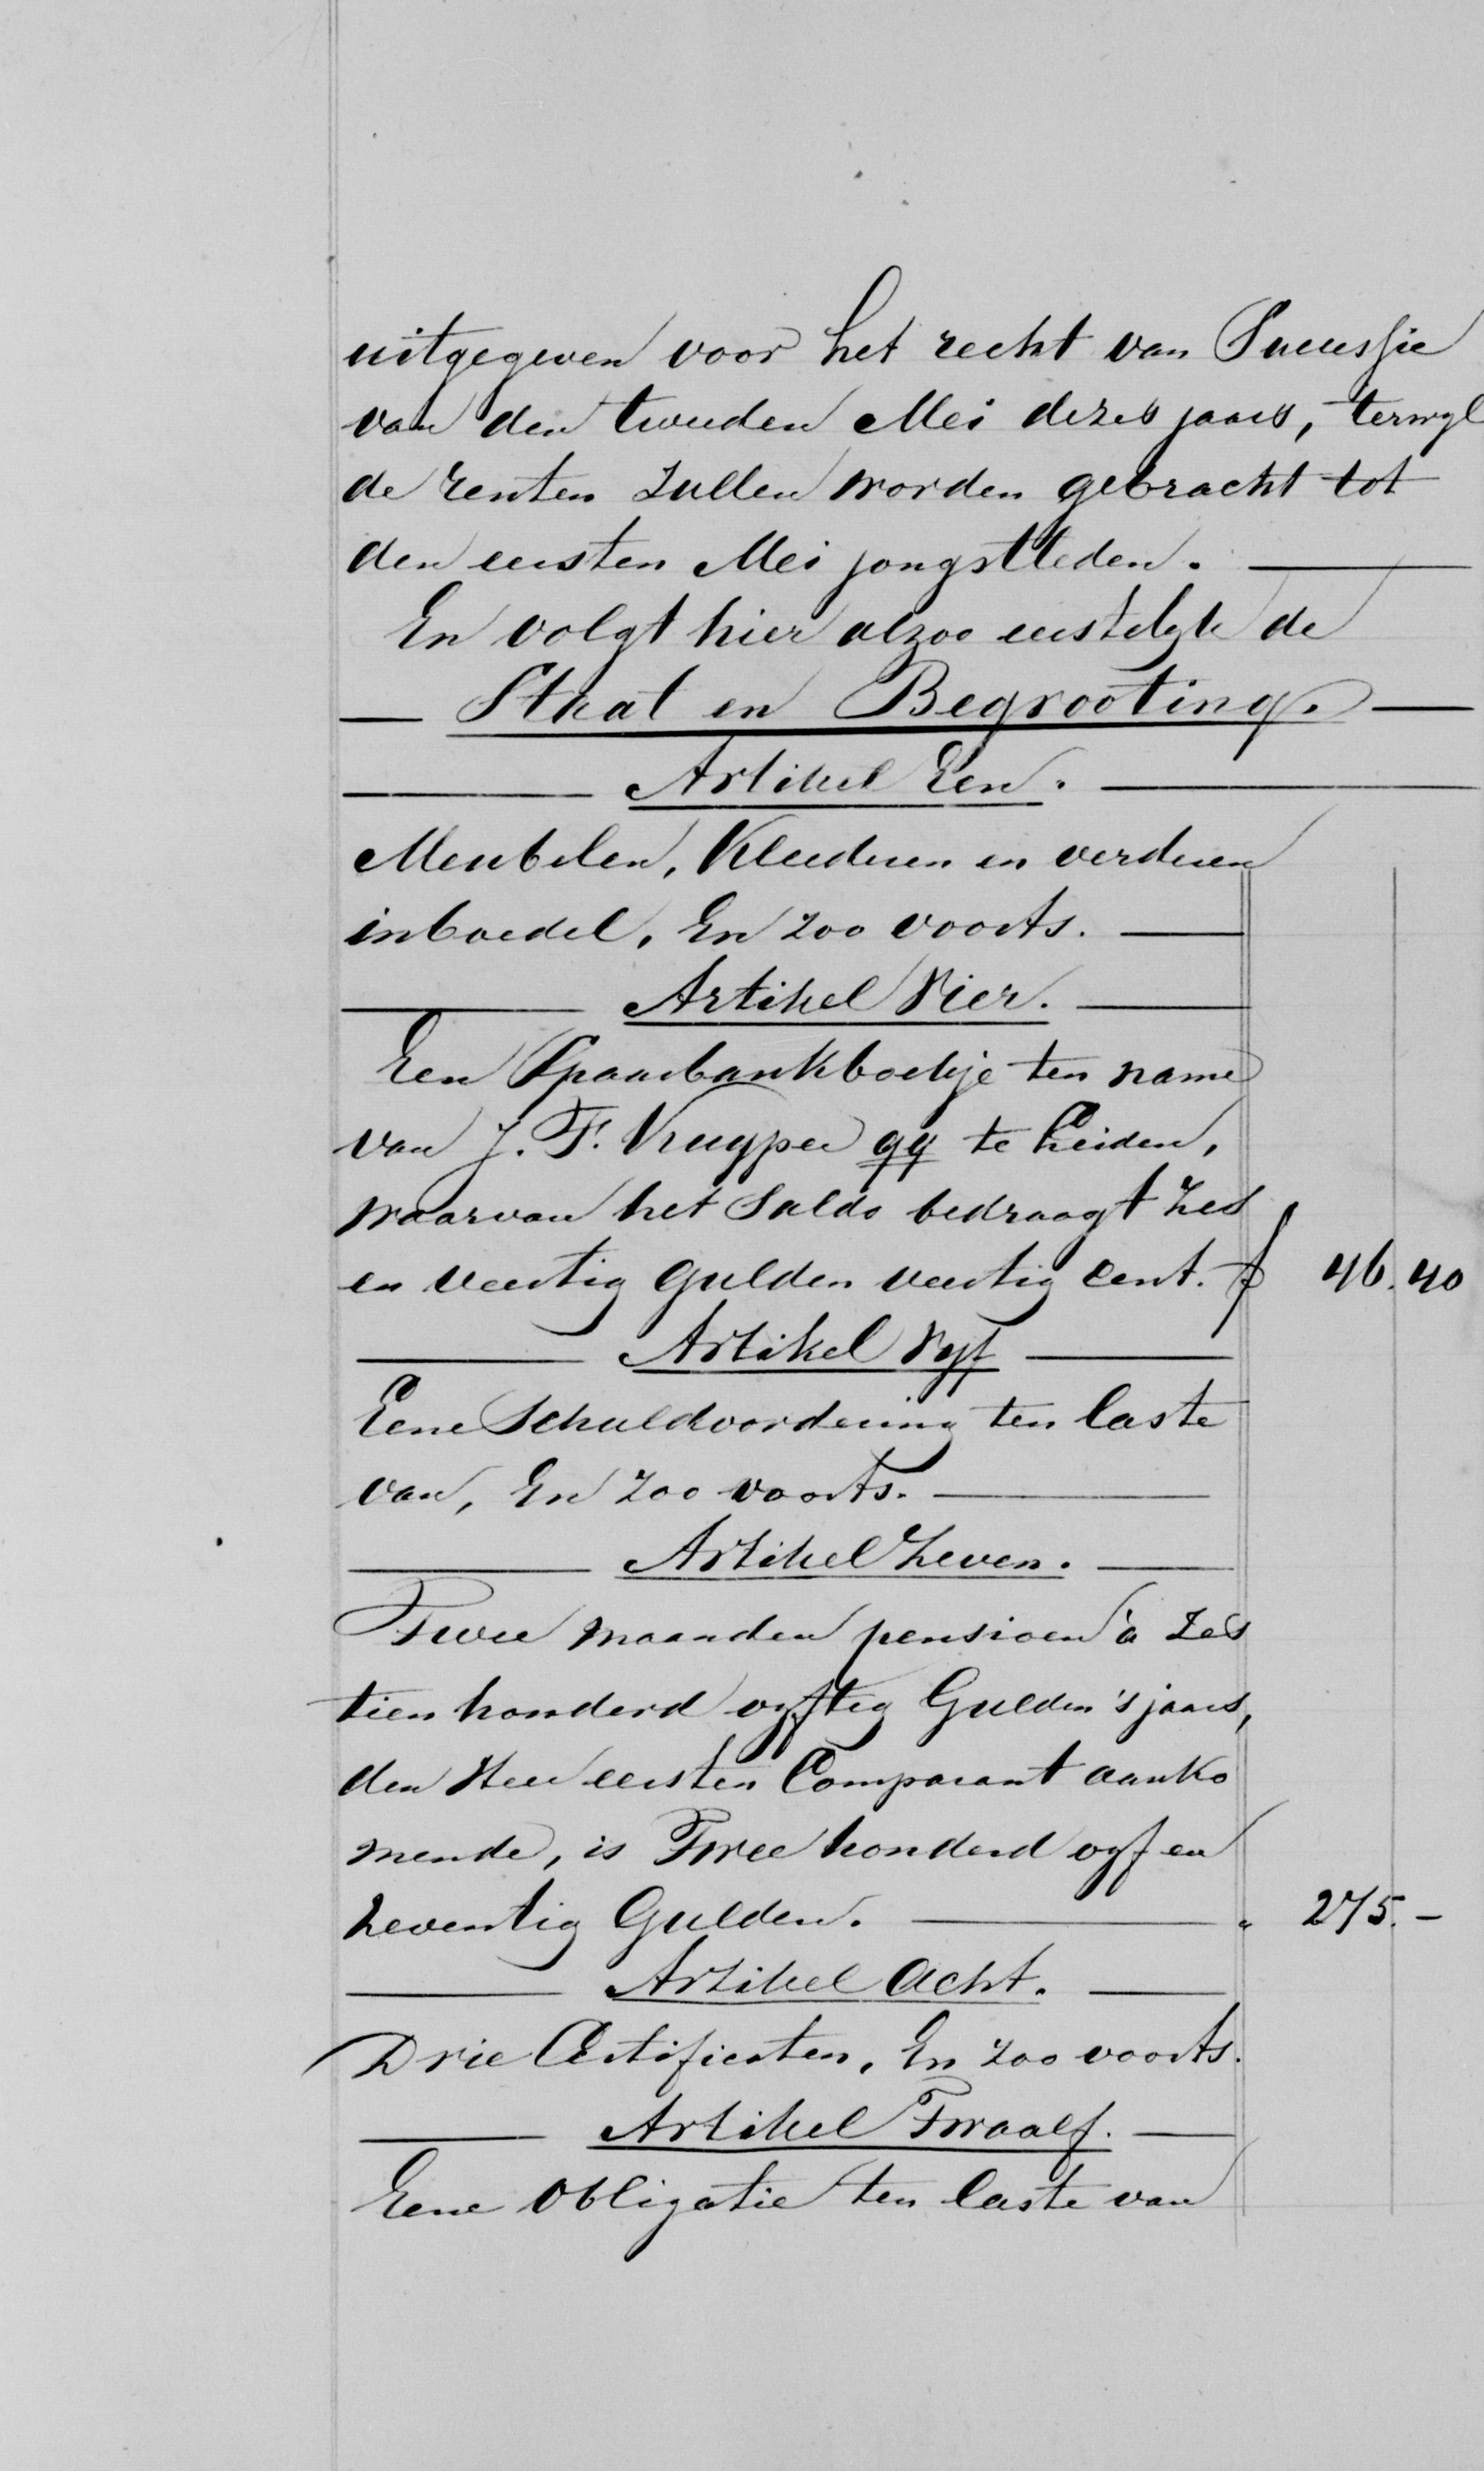 uitgegeven voor het recht van Successie
van den tweeden Mei dezes jaars, terwyl
de renten zullen worden gebracht tot
den eersten Mei jongstleden.
En volgt hier alzoo eerstelyk de
Staat en Begrooting.
Artikel Een.
Meubelen, Kleederen en verderen
inboedel, En zoo voorts.
Artikel Vier.
Een Spaarbankboekje ten name
van J. F. Kuyper qq te Leiden,
waarvan het Saldo bedraagt Zes
en veertig Gulden veertig Cent. f 46.40
Artikel Vyf
Eene Schuldvordering ten laste
van, En zoo voorts.
Artikel Zeven.
Twee maanden pensioen à Zes
tien honderd vyftig Gulden 's jaars,
den Heer eersten Comparant aanko
mende, is Twee honderd vyf en
Zeventig Gulden. " 275.-
Artikel Acht.
Drie Certificaten, En zoo voorts.
Artikel Twaalf.
Eene Obligatie ten laste van